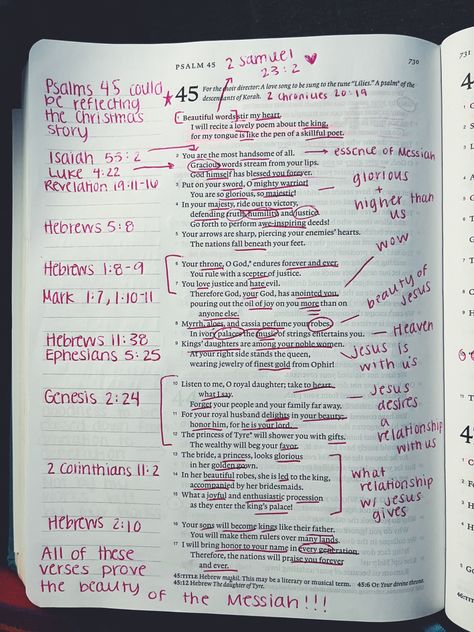 PSALM 45
729
730
2 Samuel
23:2
Psalms 45 could
be reflecting
the Christmas
story
45 For the choir director: A love song to be sung to the tune “Lilies.” A psalm* of the
descendants of Korah. 2 Chronicles 20:19
1 Beautiful words stir my heart.
I will recite a lovely poem about the king,
for my tongue is like the pen of a skillful poet.
Isaiah 53:2
Luke 4:22
Revelation 19:11-16
2 You are the most handsome of all.
Gracious words stream from your lips.
God himself has blessed you forever.
essence of Messiah
3 Put on your sword, O mighty warrior!
You are so glorious, so majestic!
4 In your majesty, ride out to victory,
defending truth, humility, and justice.
Go forth to perform awe-inspiring deeds!
glorious
+
higher than
us
Hebrews 5:8
5 Your arrows are sharp, piercing your enemies’ hearts.
The nations fall beneath your feet.
wow
Hebrews 1:8-9
6 Your throne, O God,* endures forever and ever.
You rule with a scepter of justice.
7 You love justice and hate evil.
Therefore God, your God, has anointed you,
pouring out the oil of joy on you more than on
anyone else.
Mark 1:7, 1:10-11
beauty of
Jesus
8 Myrrh, aloes, and cassia perfume your robes.
In ivory palaces the music of strings entertains you.
Heaven
9 Kings’ daughters are among your noble women.
At your right side stands the queen,
wearing jewelry of finest gold from Ophir!
Hebrews 11:38
Ephesians 5:25
Jesus is
with us
10 Listen to me, O royal daughter; take to heart
what I say.
Forget your people and your family far away.
11 For your royal husband delights in your beauty;
honor him, for he is your lord.
12 The princess of Tyre* will shower you with gifts.
The wealthy will beg your favor.
Genesis 2:24
Jesus
desires
a
relationship
with us
13 The bride, a princess, looks glorious
in her golden gown.
14 In her beautiful robes, she is led to the king,
accompanied by her bridesmaids.
15 What a joyful and enthusiastic procession
as they enter the king’s palace!
2 Corinthians 11:2
what
relationship
w/ Jesus
gives
16 Your sons will become kings like their father.
You will make them rulers over many lands.
17 I will bring honor to your name in every generation.
Therefore, the nations will praise you forever
and ever.
Hebrews 2:10
45:TITLE Hebrew maskil. This may be a literary or musical term. 45:6 Or Your divine throne.
45:12 Hebrew The daughter of Tyre.
All of these
verses prove
the beauty of the Messiah!!!